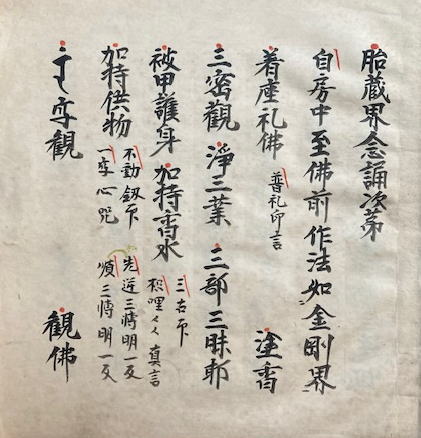 胎蔵界念誦次第
自房中至佛前作法如金剛界
着座礼佛 普礼印言 塗香
三密觀 淨三業 三部三昧耶
被甲護身 加持香水 三古印
枳哩々々真言
加持供物 不動釼印 先逆三轉明一反
一字心咒 順三轉明一反
字觀 觀佛